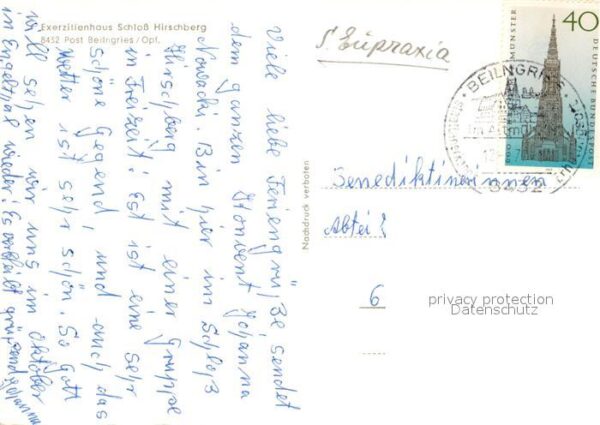 Exerzitienhaus Schloß Hirschberg
8432 Post Beilngries/Opf.
Viele liebe Feriengrüße sendet
dem ganzen Konvent Johanna
Nowacki. Bin hier im Schloß
Hirschberg mit einer Gruppe
in Freizeit. Es ist eine sehr
schöne Gegend, und auch das
Wetter ist sehr schön. So Gott
will sehen wir uns im Oktober
in Engelthal wieder! Es verbleibt grüßend Johanna
Nachdruck verboten
S. Eupraxia
40
DEUTSCHE BUNDESPOST
MÜNSTER
BEILNGRIES
im Altmühltal
8432
Benediktinerinnen
Abtei
6
privacy protection
Datenschutz